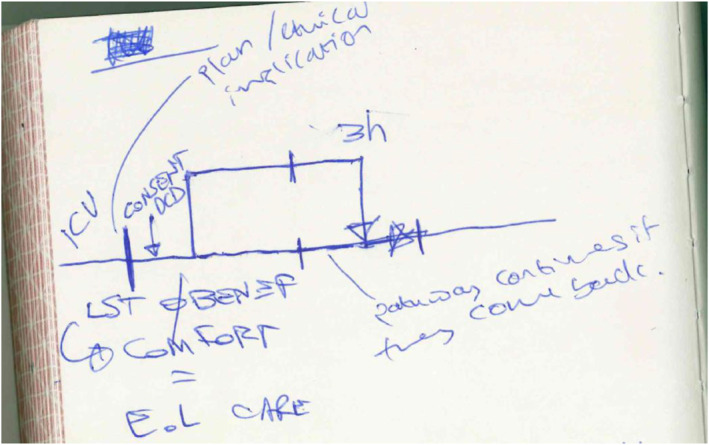 plan / clinical
implication
3h
ICU
CONSENT
DCD
LST ∅ BENEF
COMFORT
=
E.L CARE
pathway continues if
they come back.